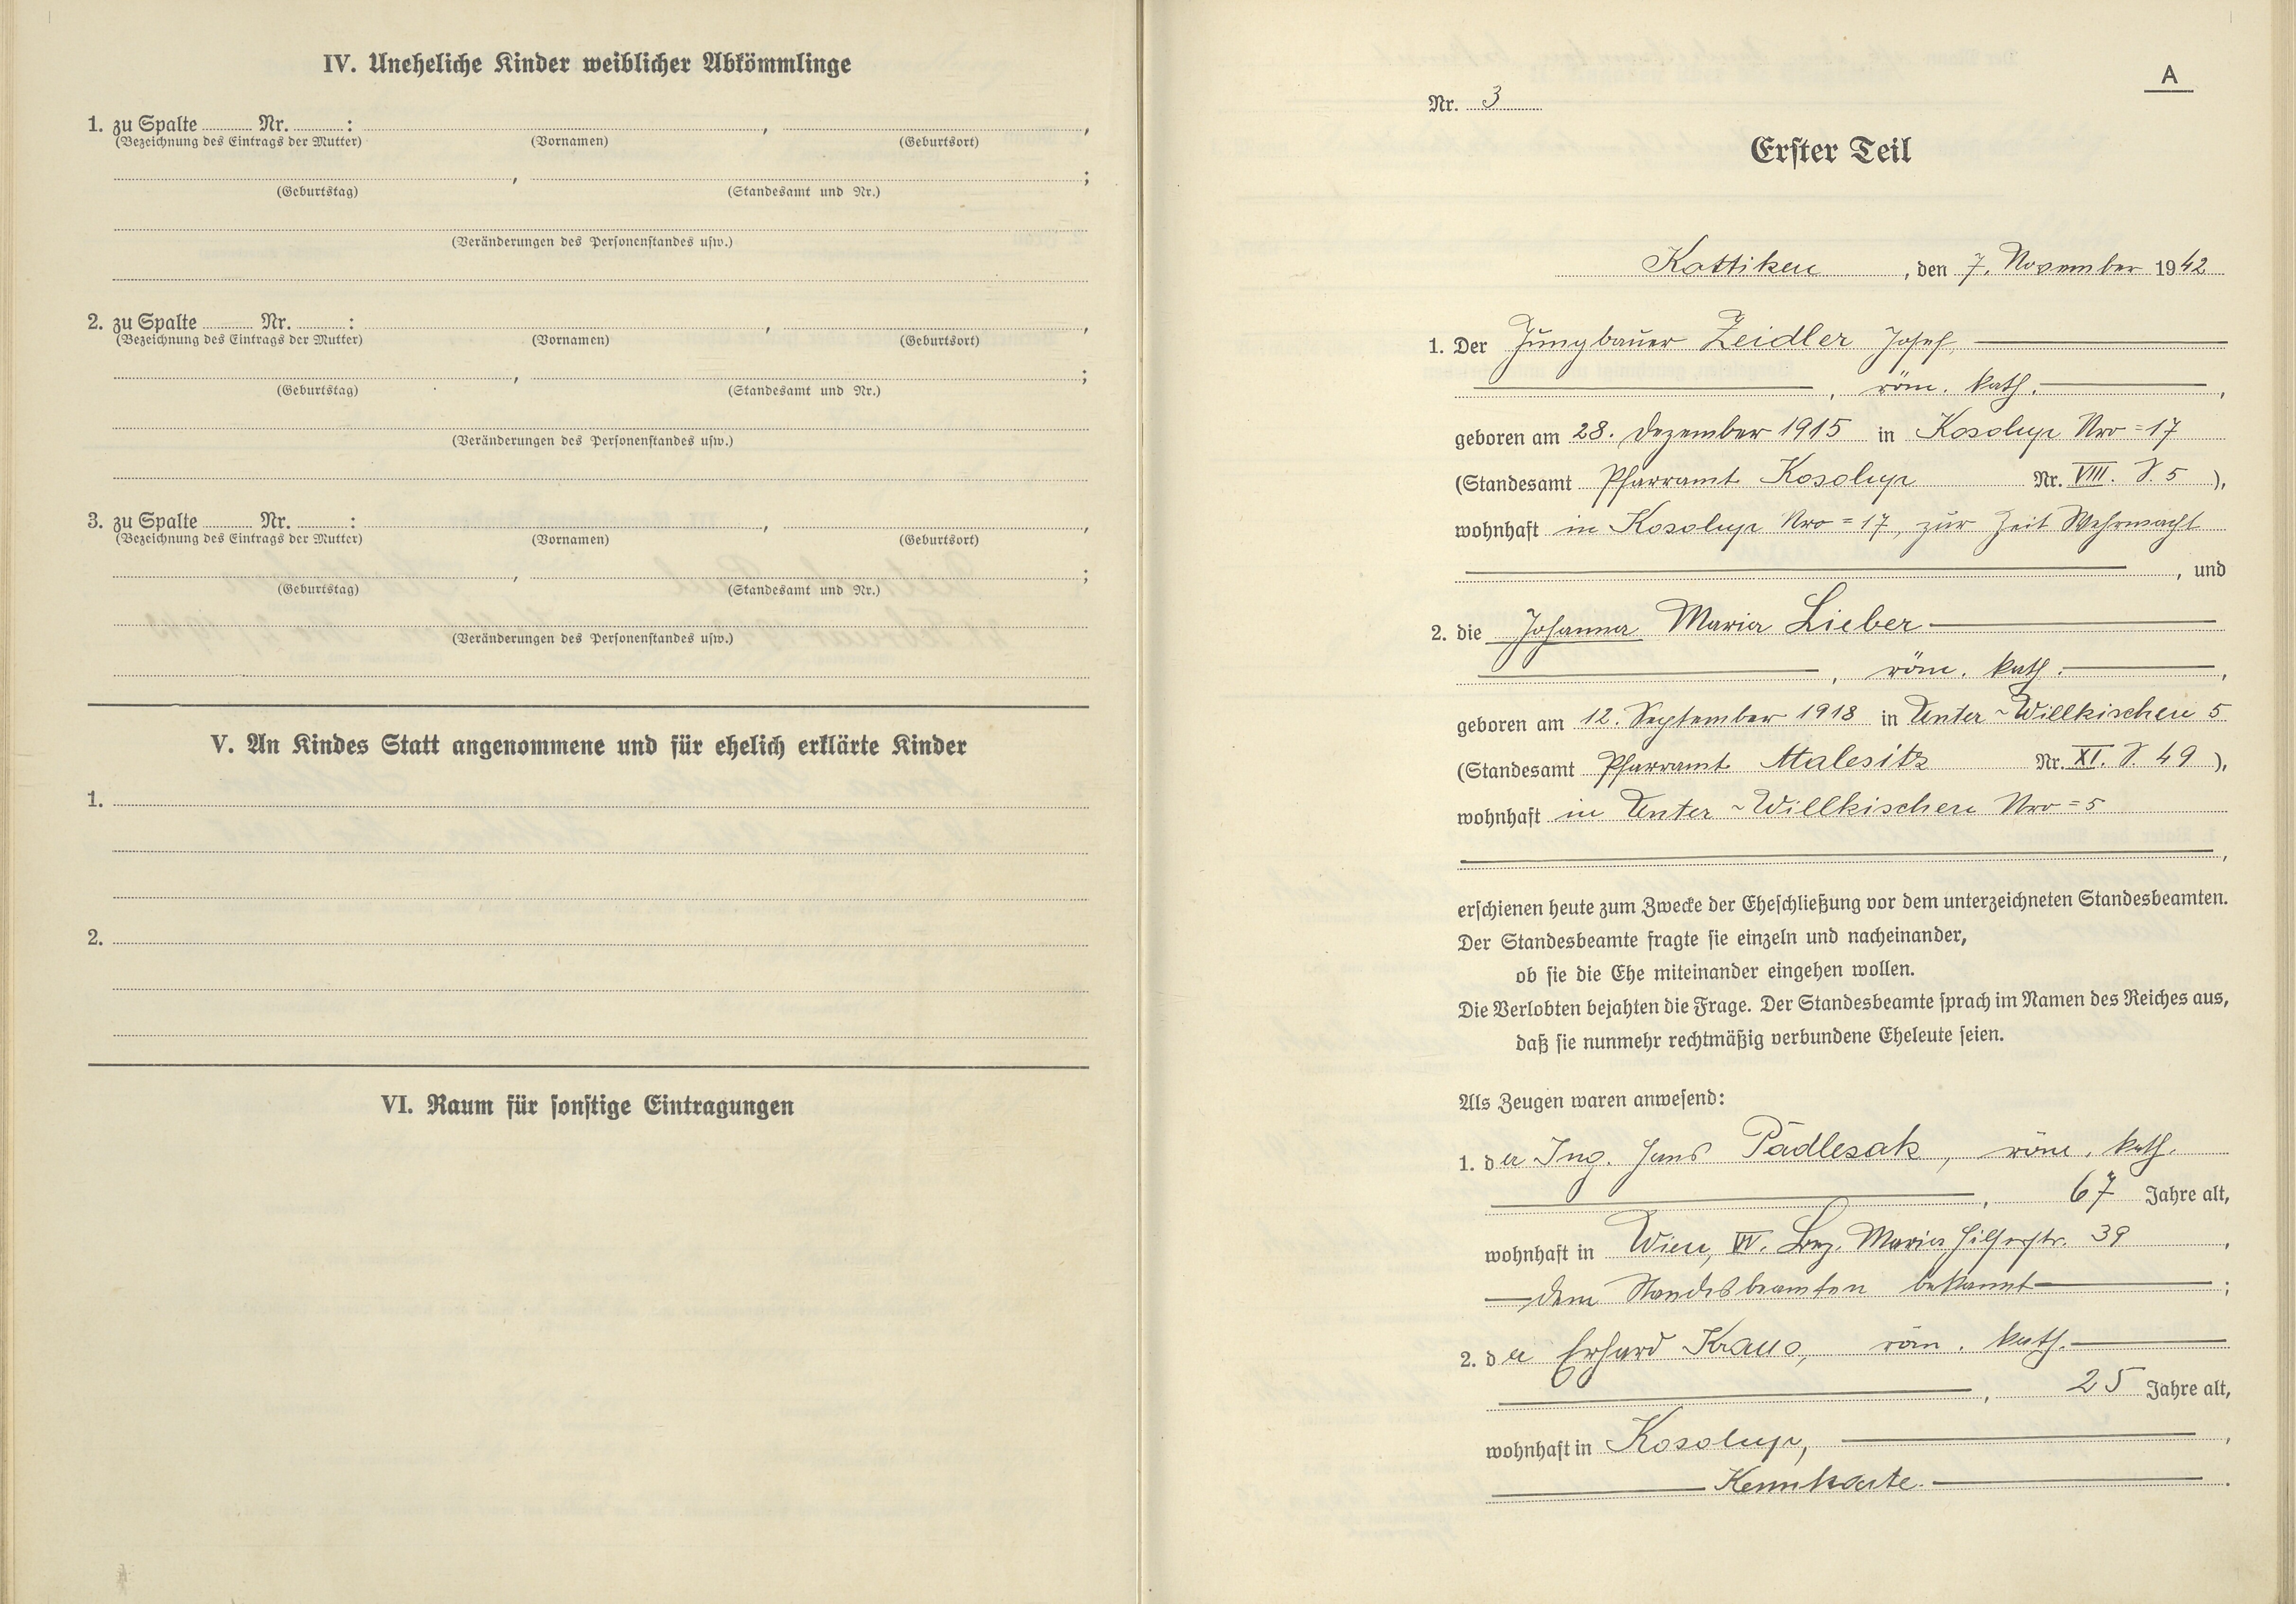 IV. Uneheliche Kinder weiblicher Abkömmlinge
1. zu Spalte ........ Nr. ........ : ........ , ........ ,
(Bezeichnung des Eintrags der Mutter) (Vornamen) (Geburtsort)
........ , ........ ;
(Geburtstag) (Standesamt und Nr.)
(Veränderungen des Personenstandes usw.)
2. zu Spalte ........ Nr. ........ : ........ , ........ ,
(Bezeichnung des Eintrags der Mutter) (Vornamen) (Geburtsort)
........ , ........ ;
(Geburtstag) (Standesamt und Nr.)
(Veränderungen des Personenstandes usw.)
3. zu Spalte ........ Nr. ........ : ........ , ........ ,
(Bezeichnung des Eintrags der Mutter) (Vornamen) (Geburtsort)
........ , ........ ;
(Geburtstag) (Standesamt und Nr.)
(Veränderungen des Personenstandes usw.)
V. An Kindes Statt angenommene und für ehelich erklärte Kinder
1.
2.
VI. Raum für sonstige Eintragungen
A
Nr. 3
Erster Teil
Kottiken, den 7. November 1942
1. Der Jungbauer Zeidler Josef,
, röm. kath.,
geboren am 28. Dezember 1915 in Kosolup Nro = 17
(Standesamt Pfarramt Kosolup Nr. VIII. S. 5 ),
wohnhaft in Kosolup Nro = 17, zur Zeit Wehrmacht
, und
2. die Johanna Maria Lieber
, röm. kath.,
geboren am 12. September 1918 in Unter-Willkischen 5
(Standesamt Pfarramt Malesitz Nr. XI. S. 49 ),
wohnhaft in Unter-Willkischen Nro = 5
,
erschienen heute zum Zwecke der Eheschließung vor dem unterzeichneten Standesbeamten.
Der Standesbeamte fragte sie einzeln und nacheinander,
ob sie die Ehe miteinander eingehen wollen.
Die Verlobten bejahten die Frage. Der Standesbeamte sprach im Namen des Reiches aus,
daß sie nunmehr rechtmäßig verbundene Eheleute seien.
Als Zeugen waren anwesend:
1. der Ing. Hans Padlesak, röm. kath.
, 67 Jahre alt,
wohnhaft in Wien, Bez. Maria Hilferstr. 39 ,
dem Standesbeamten bekannt ;
2. der Erhard Kraus, röm. kath.
, 25 Jahre alt,
wohnhaft in Kosolup, ,
Kennkarte .